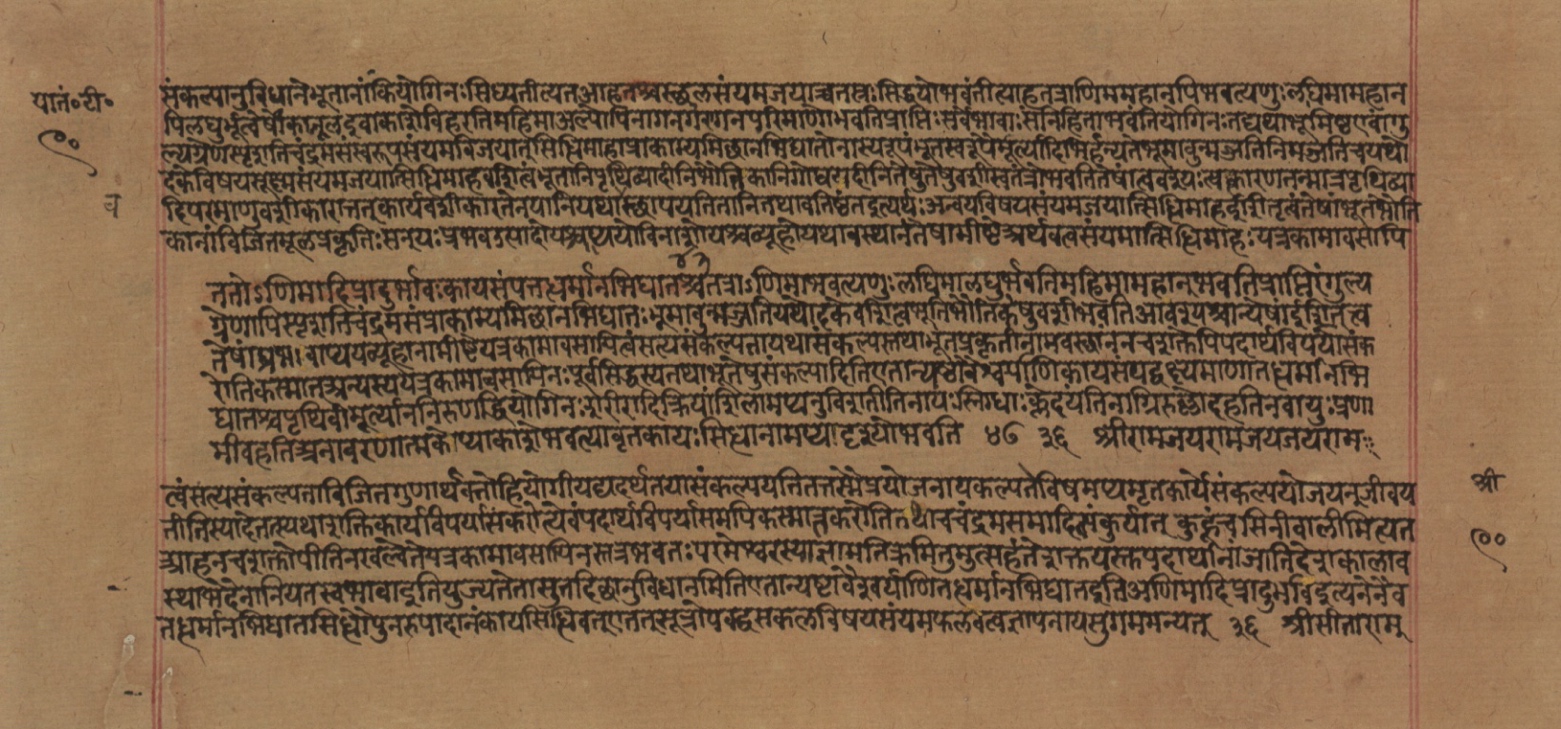 पातं॰टी॰
९०
संकल्पानुविधानेभूतानांकियोगिनःसिध्यतीत्यतआहतत्रस्थूलसंयमजयाच्चतस्रःसिद्धयोभवंतीत्याहतत्राणिममहानपिभवत्यणुःलघिमामहान
पिलघुर्भूत्वेषीकातूलइवाकाशेविहरतिमहिमाअल्पोपिनागनगगगनपरिमाणोभवतिप्राप्तिःसर्वेभावाःसंनिहिताभवंतियोगिनःतद्यथाभूमिष्ठएवांगु
ल्यग्रेणस्पृशतिचंद्रमसंस्वरूपसंयमविजयात्सिद्धिमाहप्राकाम्यमिछानभिघातोनास्यरूपंभूतस्वरूपैर्मूर्त्यादिभिर्हन्यतेभूमावुन्मज्जतिनिमज्जतिचयथो
दकेविषयसूक्ष्मसंयमजयात्सिद्धिमाहवशित्वंभूतानिपृथिव्यादीनिभौतिकानिगोघटादीनितेषुतेषुवशीस्वतंत्रोभवतितेषांत्ववश्यःस्वकारणतन्मात्रपृथिव्या
दिपरमाणुवशीकारात्तत्कार्यवशीकारस्तेनयानियथास्थापयतितानितथावतिष्ठंतइत्यर्थःअन्वयविषयसंयमजयात्सिद्धिमाहईशितृत्वंतेषांभूतभौति
कानांविजितमूलप्रकृतिःसन्यःप्रभवउत्पादोयश्चाप्ययोविनाशोयश्चव्यूहोयथावस्थानंतेषामीष्टेअर्थवत्वसंयमात्सिद्धिमाहःयत्रकामावसायि
ततोऽणिमादिप्रादुर्भावःकायसंपत्तद्धर्मानभिघातश्चतत्राऽणिमाभवत्यणुःलघिमालघुर्भवतिमहिमामहान्भवतिप्राप्तिरंगुल्य
ग्रेणापिस्पृशतिचंद्रमसंप्राकाम्यमिछानभिघातःभूमावुन्मज्जतियथोदकेवशित्वंभूतभौतिकेषुवशीभवतिआवश्यश्चान्येषांईशितृत्वं
तेषांप्रभवाप्ययव्यूहानामीष्टेयत्रकामावसायित्वंसत्यसंकल्पतायथासंकल्पस्तथाभूतप्रकृतीनामवस्थानंनचशक्तोपिपदार्थविपर्यासंक
रोतिकस्मात्अन्यस्ययत्रकामावसायिनःपूर्वसिद्धस्यतथाभूतेषुसंकल्पादितिएतान्यष्टावैश्वर्याणिकायसंपद्वक्ष्यमाणातद्धर्मानभि
घातश्चपृथिवीमूर्त्याननिरुणद्धियोगिनःशरीरादिक्रियांशिलामप्यनुविशतीतिनापःस्निग्धाःक्लेदयंतिनाग्निरुष्णोदहतिनवायुःप्रणा
मीवहतिअनावरणात्मकेप्याकाशेभवत्यावृतकायःसिद्धानामप्यदृश्योभवति ४७ ३६ श्रीरामजयरामजयजयराम
त्वंसत्यसंकल्पताविजितगुणार्थवत्वोहियोगीयद्यदर्थतयासंकल्पयतितत्तस्मैप्रयोजनायकल्पतेविषमप्यमृतकार्येसंकल्पयोजयन्जीवय
तीतिस्यादेतत्यथाशक्तिकार्यविपर्यासंकरोत्येवंपदार्थविपर्यासमपिकस्मान्नकरोतितथाचचंद्रमसमादित्यंकुर्यात् कुहूंचसिनीवालीमित्यत
आहनचशक्तोपीतिनखल्वेतेयत्रकामावसायिनस्तत्रभवतःपरमेश्वरस्याज्ञामतिक्रमितुमुत्सहंतेशक्तयस्तुपदार्थानांजातिदेशकालाव
स्थाभेदेनानियतस्वभावाइतियुज्यतेतासुतदिछानुविधानमितिएतान्यष्टावैश्वर्याणितद्धर्मानभिघातइतिअणिमादिप्रादुर्भावइत्यनेनैव
तद्धर्मानभिघातसिद्धौपुनरुपादानंकायसिद्धिवत्एतत्सूत्रोपबद्धसकलविषयसंयमफलवत्वज्ञापनायसुगममन्यत् ३६ श्रीसीताराम्
श्री
९०